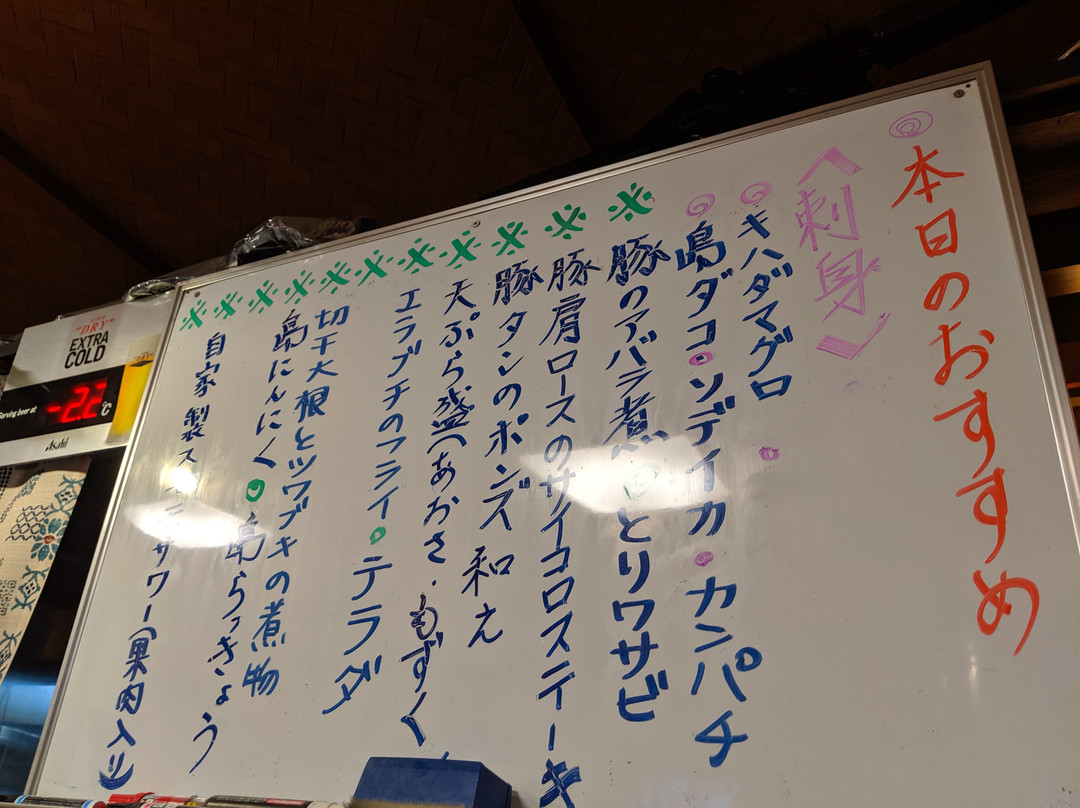 ◎本日のおすすめ
〈刺身〉
◎キハダマグロ
◎島ダコ○ソデイカ○カンパチ
※豚のアバラ煮○とりワサビ
※豚肩ロースのサイコロステーキ
※豚タンのポンズ和え
※天ぷら盛(あおさ・もずく
※エラブチのフライ○テラダ
※切干大根とツワブキの煮物
※島にんにく◎島らっきょう
※自家製ス サワー(果肉入り)
DRY
EXTRA
COLD
Serving beer at -2.2℃
Asahi